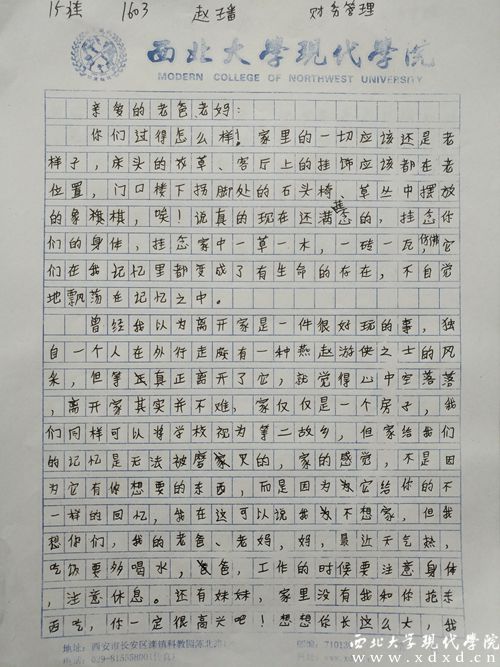 15硅 1603 赵璠 财务管理
西北大学现代学院
MODERN COLLEGE OF NORTHWEST UNIVERSITY
亲爱的老爸老妈：
你们过得怎么样！家里的一切应该还是老
样子，床头的花草、客厅上的挂饰应该都在老
位置，门口楼下拐脚处的石头椅、草丛中摆放
的象棋棋，唉！说真的现在还满怀念的，挂念你
们的身体，挂念家中一草一木，一砖一瓦，仿佛它
们在我记忆里都变成了有生命的存在，不自觉
地飘荡在记忆之中。
曾经我以为离开家是一件很好玩的事，独
自一个人在外行走颇有一种燕赵游侠之士的风
采，但等真正离开了它，就觉得心中空落落
，离开家其实并不难，家仅仅是一个房子，我
们同样可以将学校视为第二故乡，但家给我们
的记忆是无法被磨灭的，家的感觉，不是因
为它有你想要的东西，而是因为它给你的不
一样的回忆，我在这可以说我不想家，但我
想你们，我的老爸、老妈，妈，最近天气热，
吃饭要多喝水，爸，工作的时候要注意身体
，注意休息。还有妹妹，家里没有我和你抢东
西吃，你一定很高兴吧！想想你长这么大，我
地址：西安市长安区滦镇科教园陈北路
邮编：7101
电话：029-81555800(传真)
西北大学现代学院
www.xdxd.cn